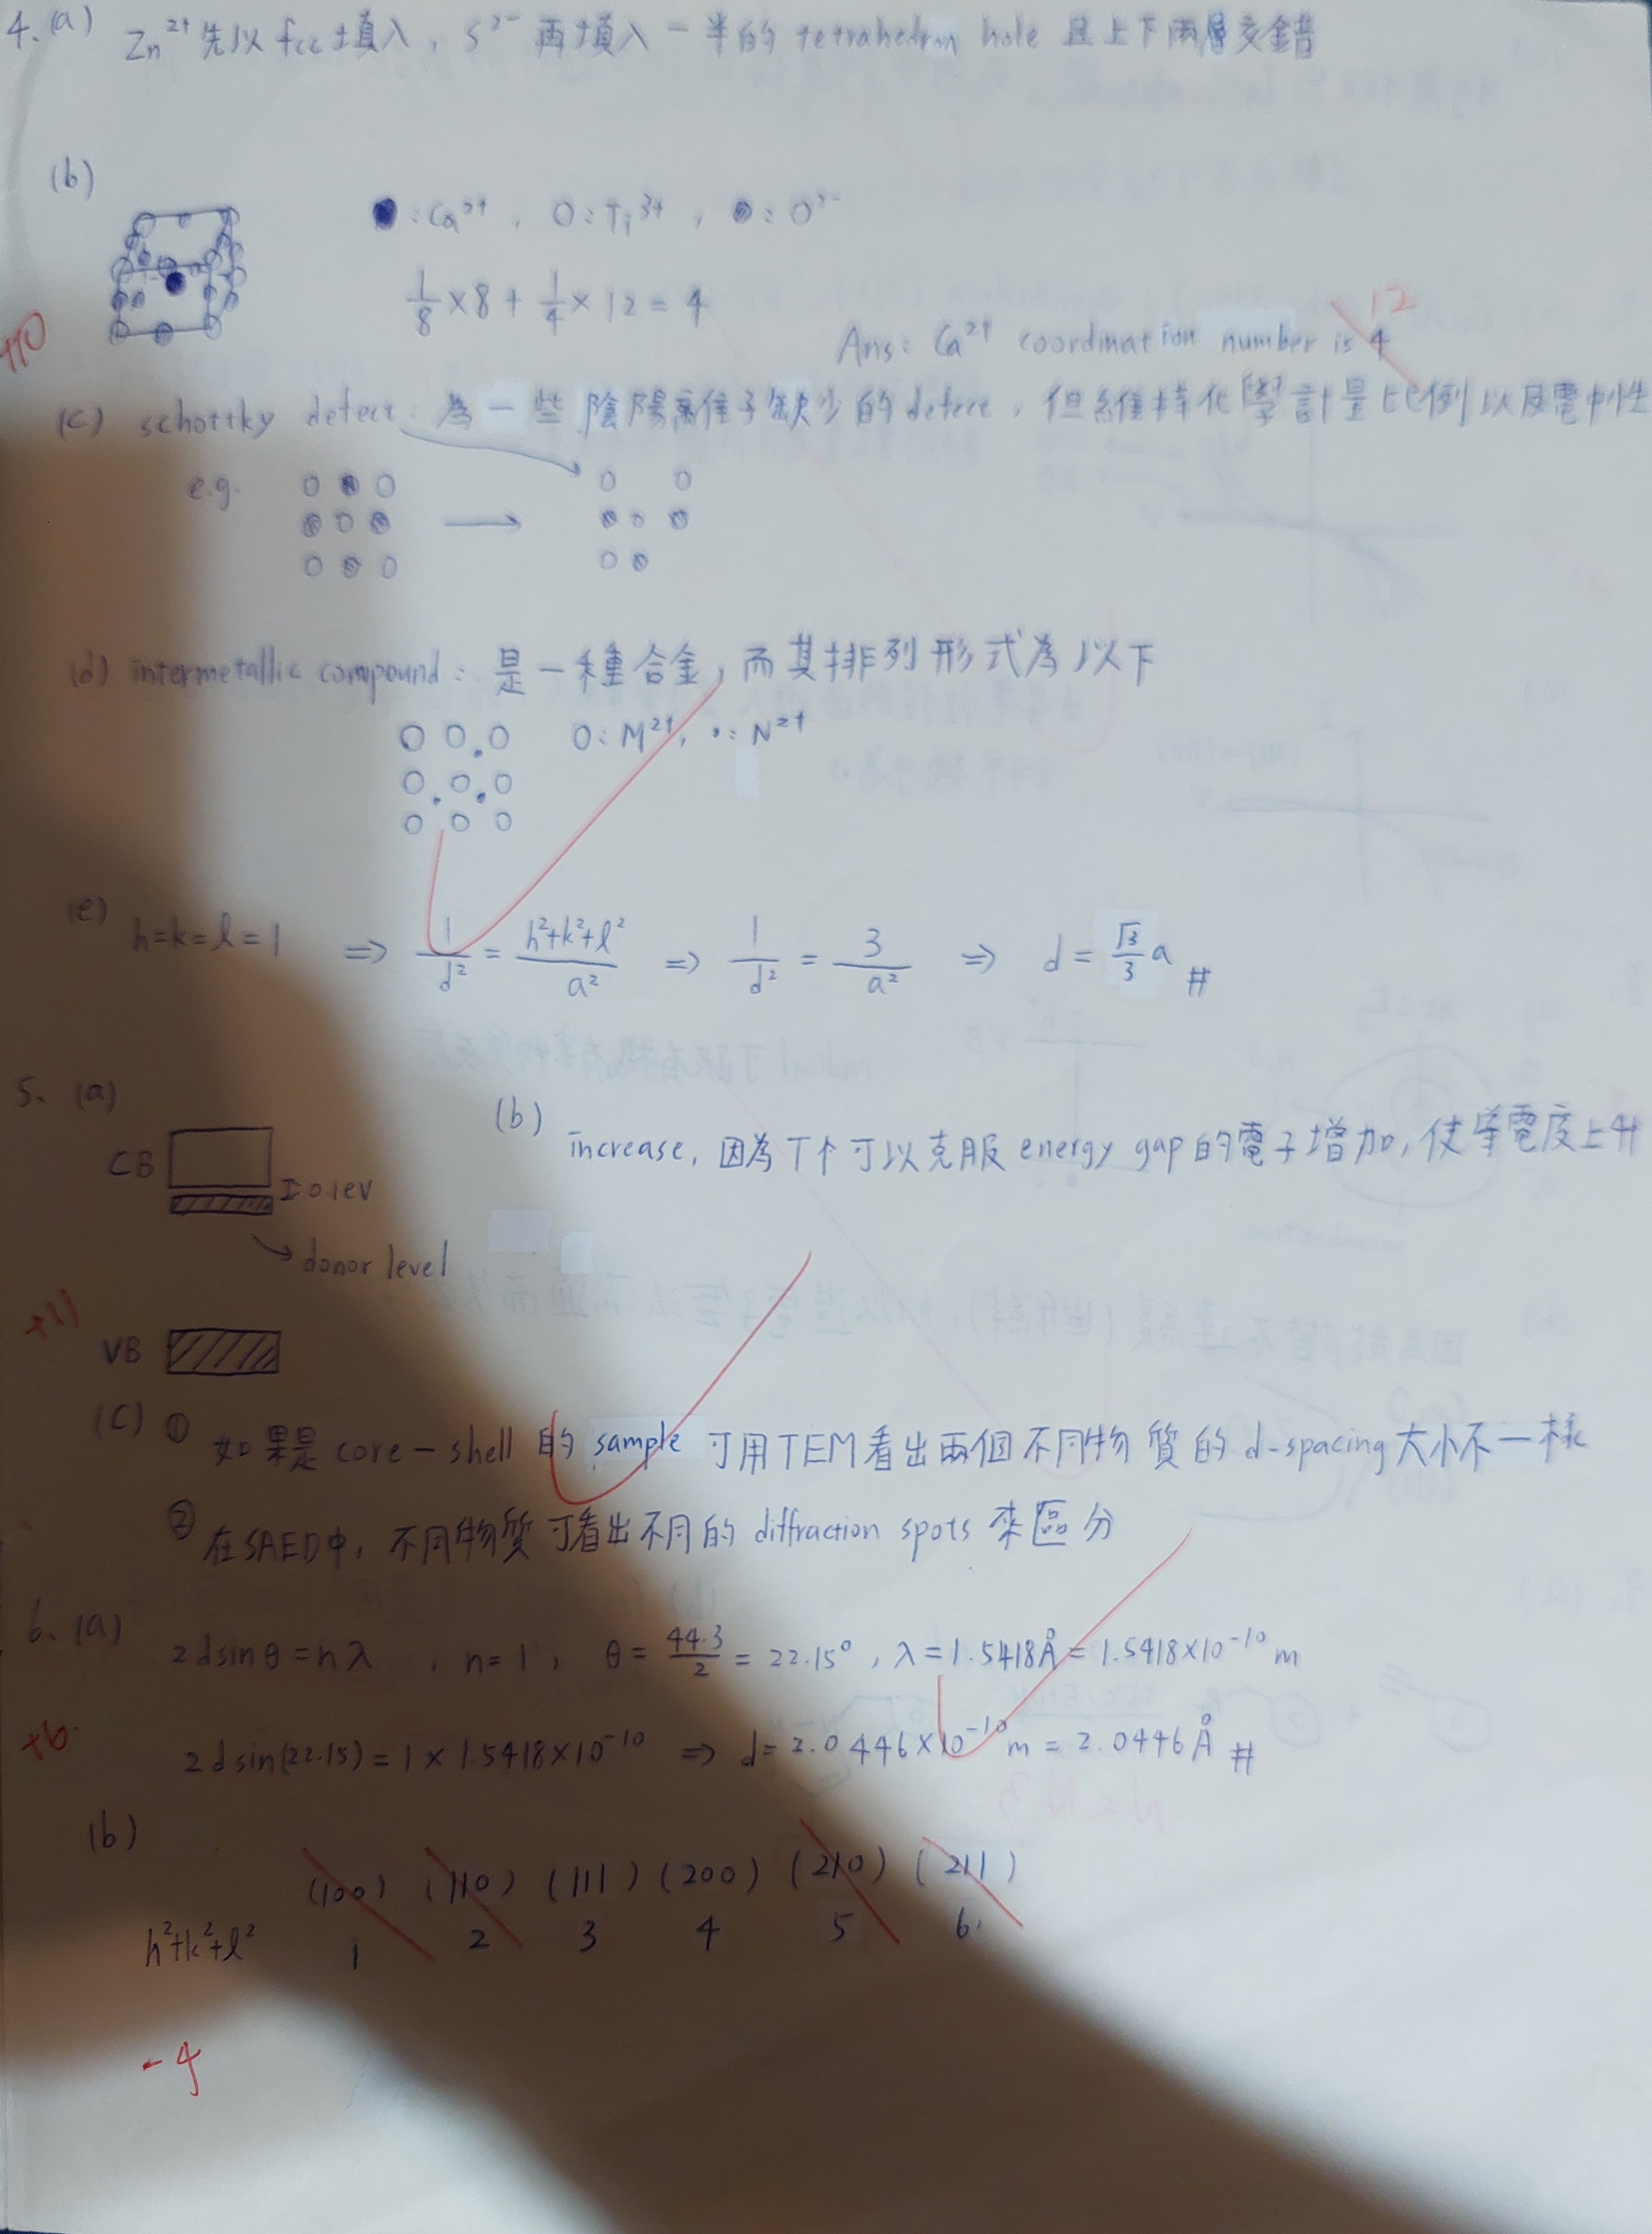 4. (a) Zn²⁺先以fcc填入，S²⁻再填入一半的tetrahedron hole且上下兩層交錯
(b)
●：Ca²⁺，O：Ti³⁺，●：O²⁻
1/8 × 8 + 1/4 × 12 = 4
12
Ans: Ca²⁺ coordination number is 4
+10
(c) schottky defect：為一些陰陽離子缺少的defect，但維持化學計量比例以及電中性
e.g.
(d) intermetallic compound：是一種合金，而其排列形式為以下
O：M²⁺，•：N²⁺
(e) h=k=l=1 ⇒ 1/d² = (h²+k²+l²)/a² ⇒ 1/d² = 3/a² ⇒ d = (√3/3) a #
5. (a)
CB
I 0.1eV
donor level
VB
+11
(b) increase，因為T↑可以克服energy gap的電子增加，使導電度上升
(c) ① 如果是core-shell的sample可用TEM看出兩個不同物質的d-spacing大小不一樣
② 在SAED中，不同物質可看出不同的diffraction spots來區分
6. (a) 2dsinθ=nλ，n=1，θ = 44.3/2 = 22.15°，λ=1.5418Å=1.5418×10⁻¹⁰ m
+6
2dsin(22.15)=1×1.5418×10⁻¹⁰ ⇒ d=2.0446×10⁻¹⁰ m = 2.0446Å #
(b)
(100) (110) (111) (200) (210) (211)
h²+k²+l² 1 2 3 4 5 6
-4